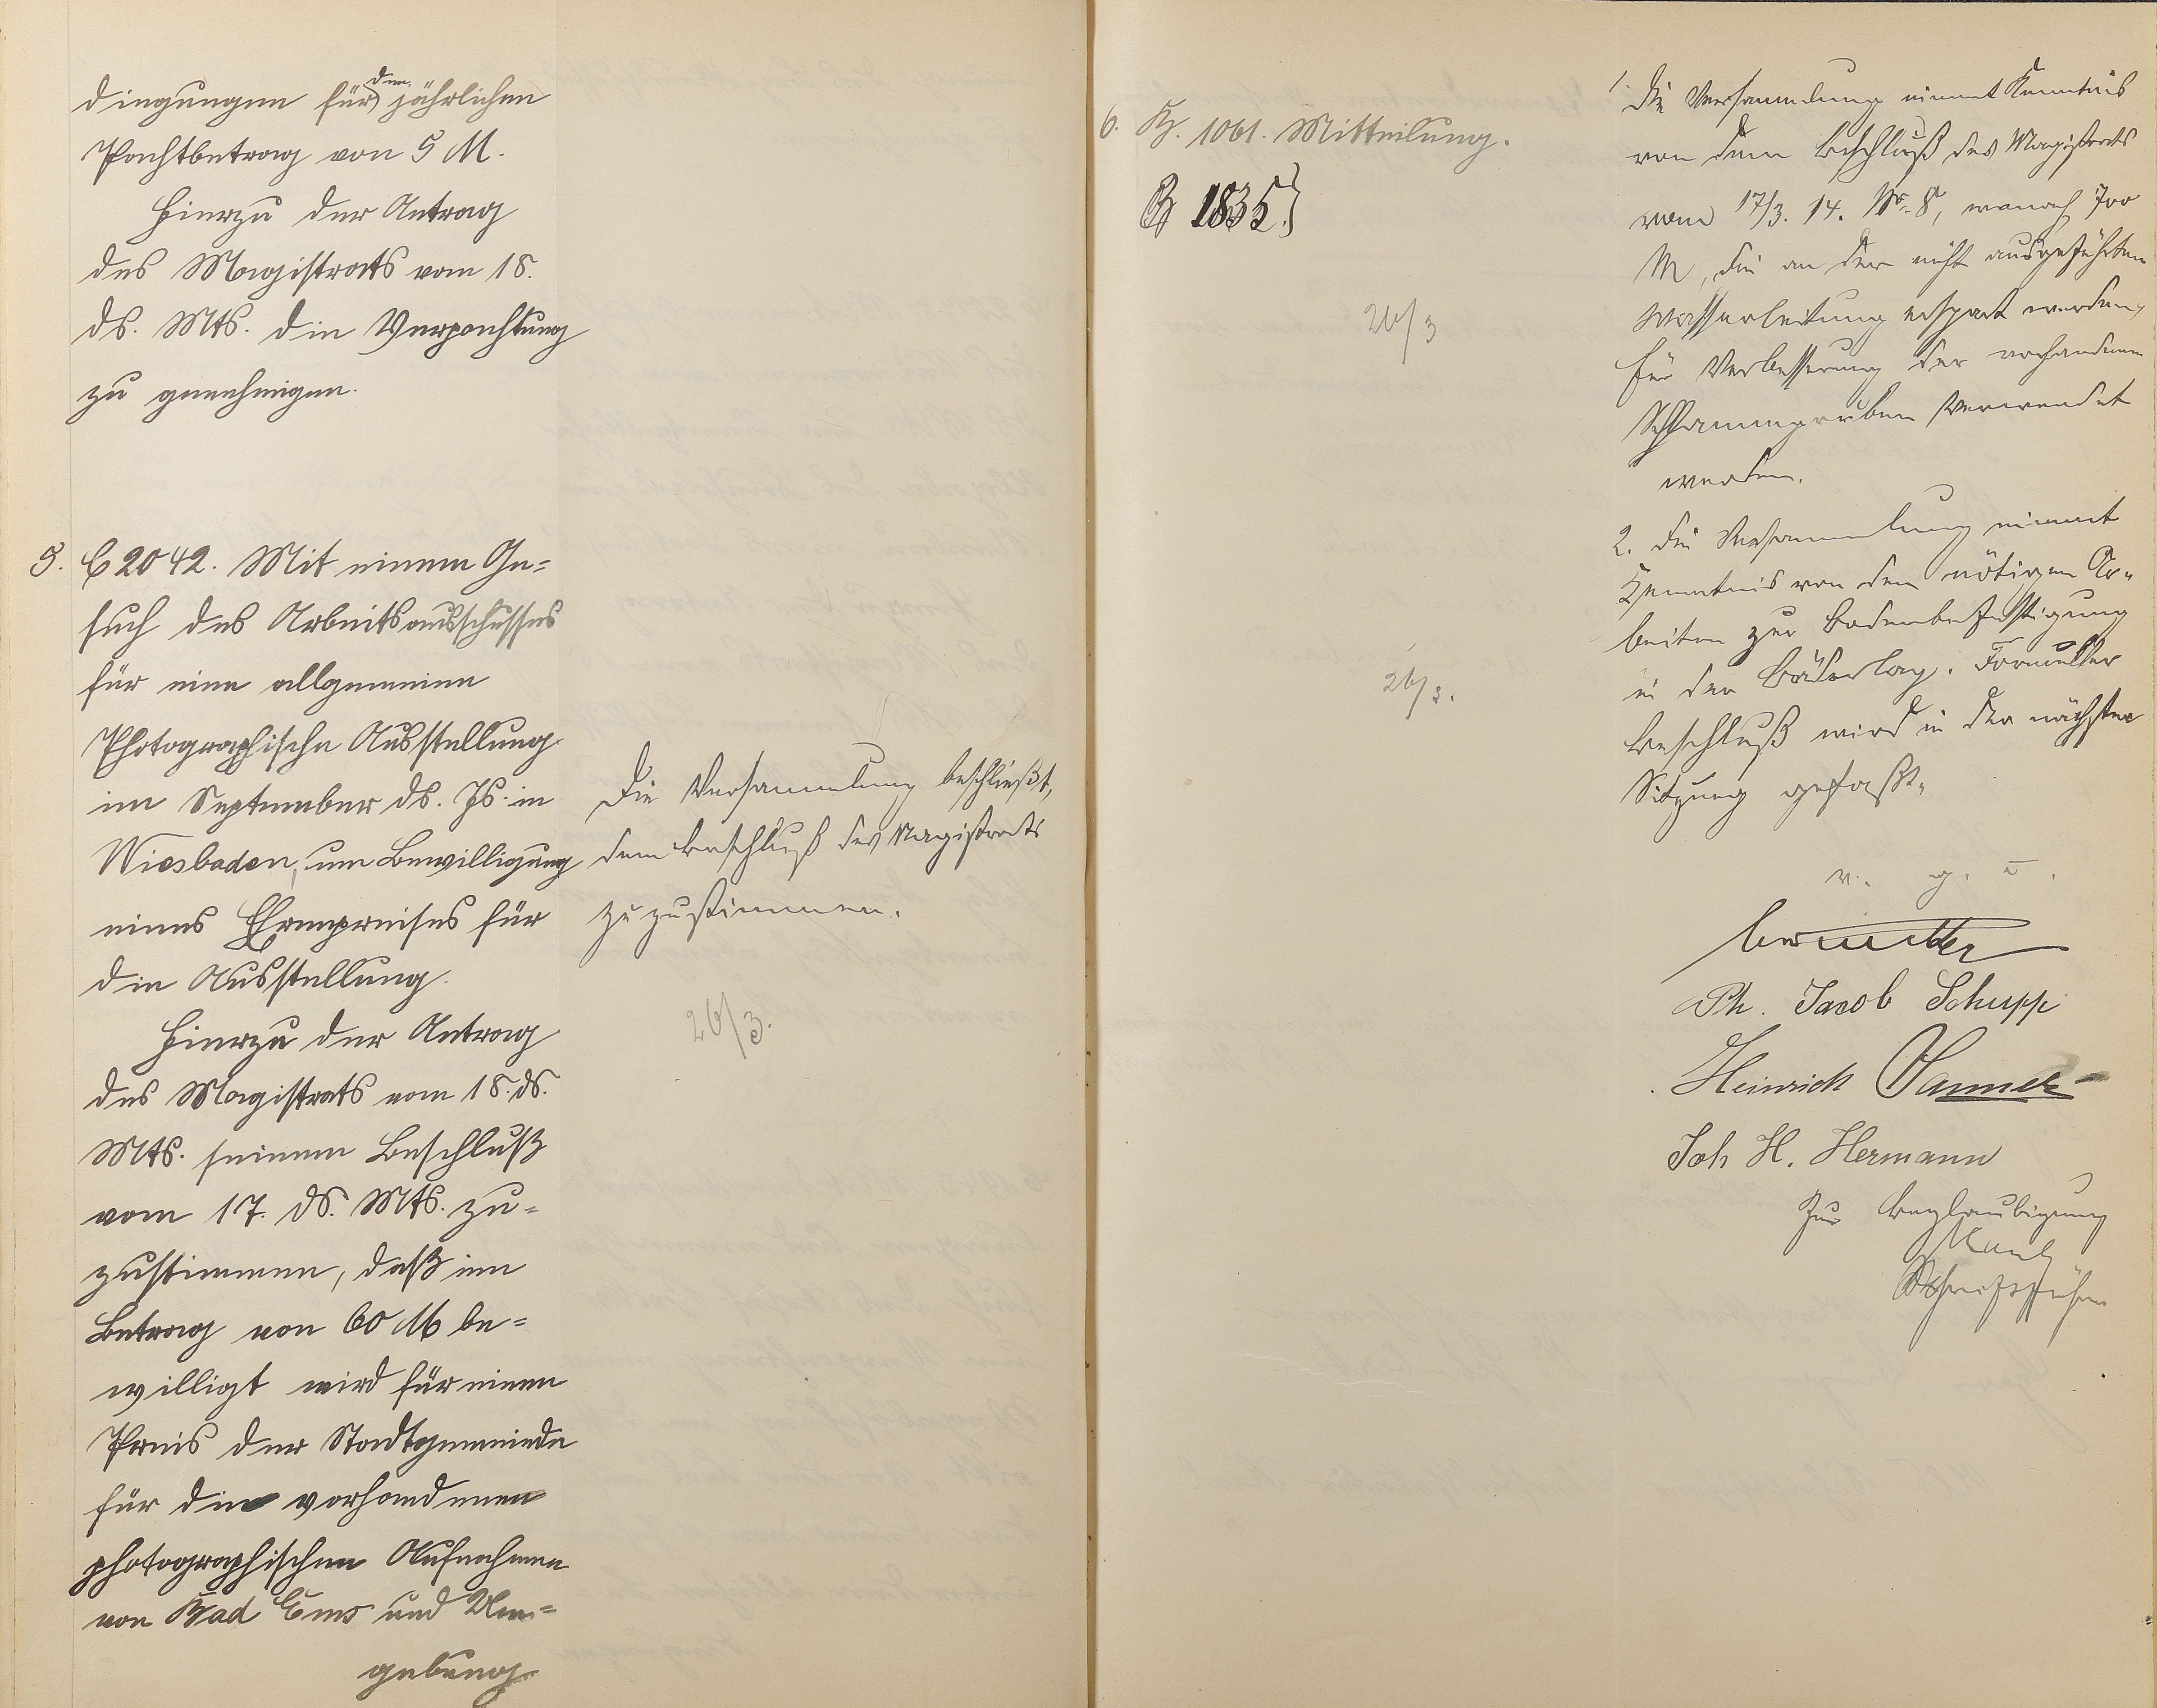 dingungen für den jährlichen
Pachtbetrag von 5 M.
Hierzu der Antrag
des Magistrats vom 18.
ds. Mts. die Verpachtung
zu genehmigen.
5. C 2042. Mit einem Ge=
such des Arbeitsausschusses
für eine allgemeine
Photographische Ausstellung
im September ds. Js. in
Wiesbaden, um Bewilligung
eines Ehrenpreises für
die Ausstellung.
Hierzu der Antrag
des Magistrats vom 18. ds.
Mts. seinem Beschluß
vom 17. ds. Mts. zu=
zustimmen, daß ein
Betrag von 60 M be=
willigt wird für einen
Preis der Stadtgemeinde
für die vorhandenen
photographischen Aufnahmen
von Bad Ems und Um=
gebung.
Die Versammlung beschließt,
dem Beschluß des Magistrats
zuzustimmen.
26/3.
6. Kz. 1061. Mitteilung.
B 1835.}
26/3
26/3.
1. Die Versammlung nimmt Kenntnis
von dem Beschluß des Magistrats
vom 17/3. 14. Nr. 8, wonach 700
M, die an der nicht ausgeführten
Wasserleitung erspart werden,
für Verbesserung der vorhandenen
Schlammgruben verwendet
werden.
2. Die Versammlung nimmt
Kenntnis von den nötigen Ar=
beiten zur Bodenbefestigung
in der Bäderley. Formeller
Beschluß wird in der nächsten
Sitzung gefaßt.
v. g. u.
Ph. Jacob Schupp
Heinrich
Joh H. Hermann
Zur Beglaubigung
Schriftführer